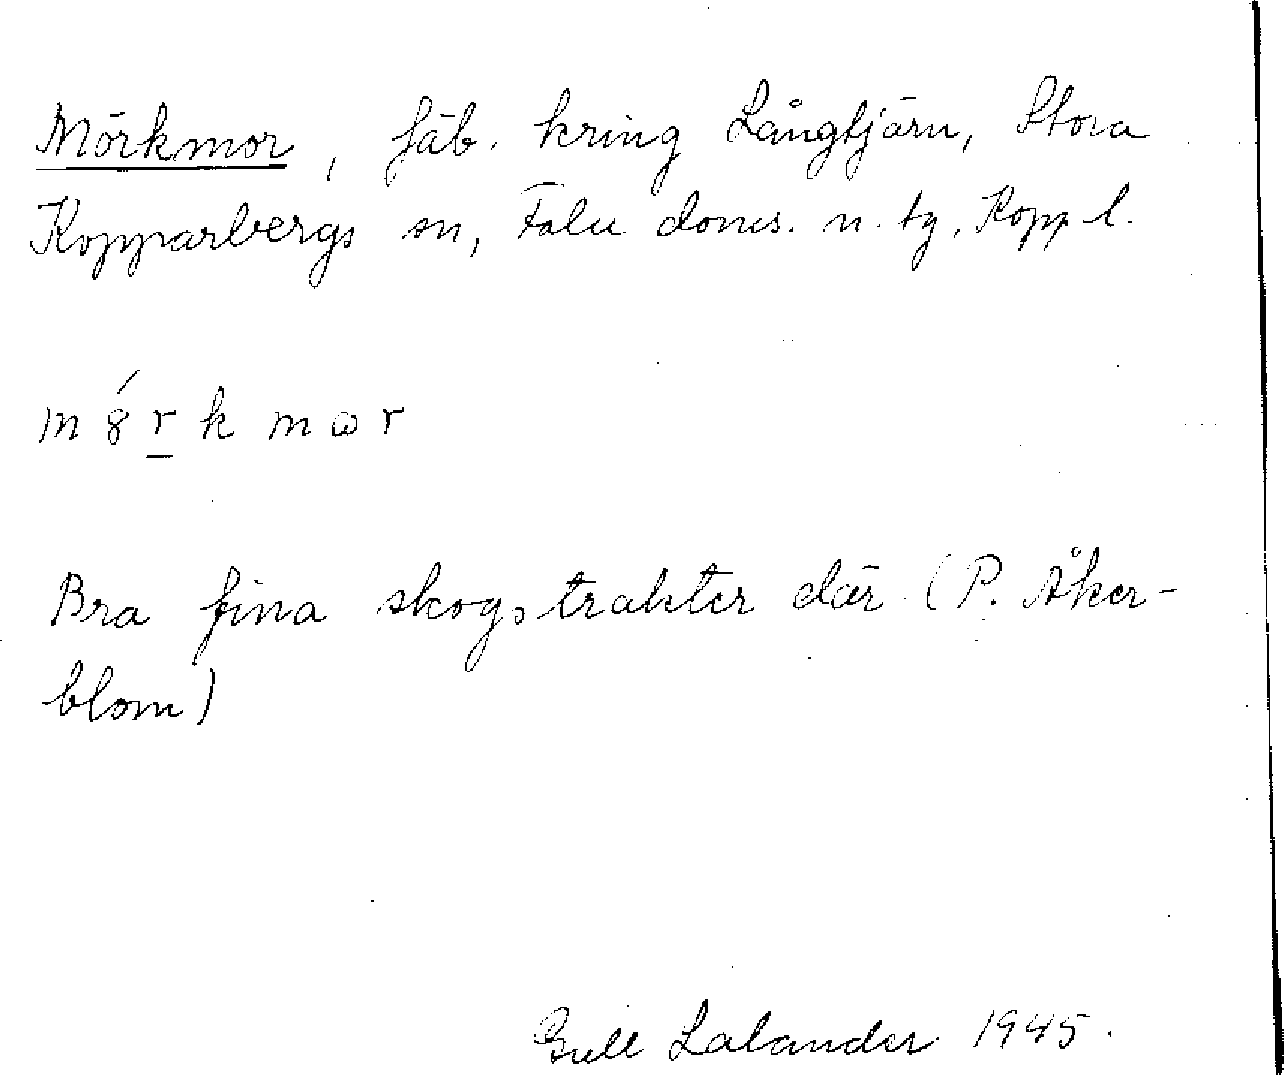 Mörkmor, fäb. kring Långtjärn, Stora
Kopparbergs sn, Falu doms. n. tg, Kopp l.
m 8́ r k m ω r
Bra fina skogstrakter där (P. Åker-
blom)
Gull Lalander 1945.